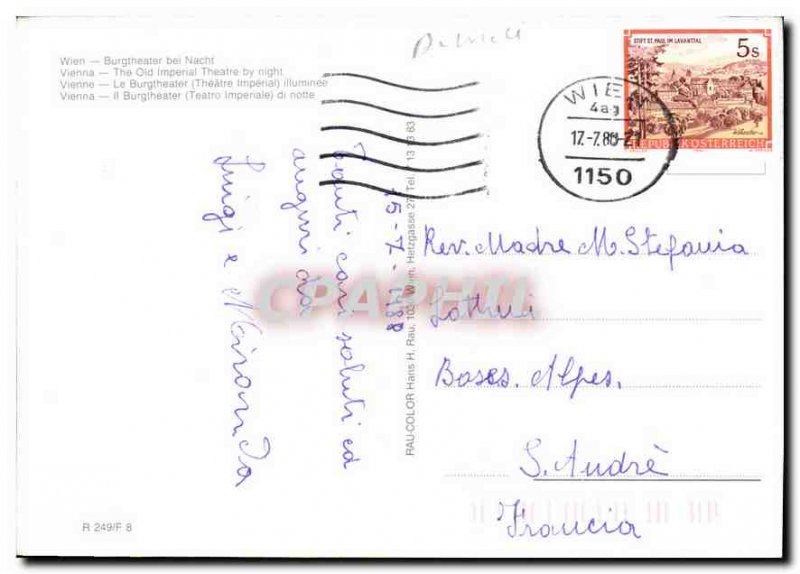 Wien — Burgtheater bei Nacht
Vienna — The Old Imperial Theatre by night
Vienne — Le Burgtheater (Théâtre Impérial) illuminée
Vienna — Il Burgtheater (Teatro Imperiale) di notte
15-7-1988
Tanti cari saluti ed
auguri da
Luigi e Miranda
R 249/F 8
RAU-COLOR Hans H. Rau, 103 Wien, Hetzgasse 27, Tel. 713 13 63
STIFT ST. PAUL IM LAVANTTAL
5s
REPUBLIK ÖSTERREICH
WIEN
17.-7.88
1150
Rev. Madre M. Stefania
Bases. Alpes.
S. Andrè
Francia
CPAPHIL